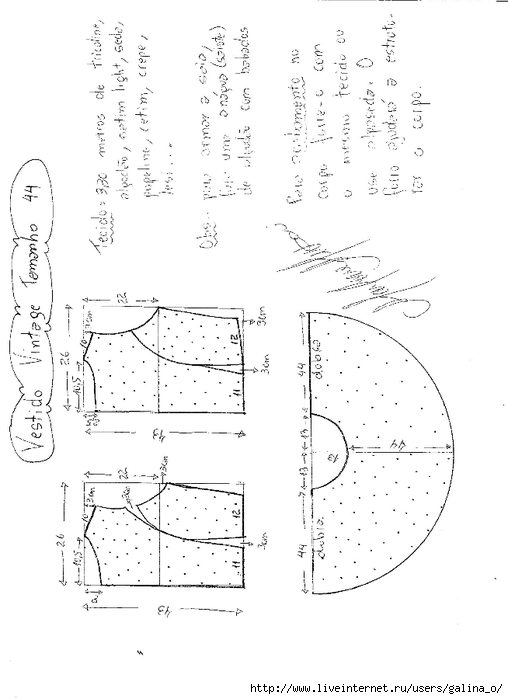 Vestido Vintage Tamanho 44
Tecido = 3,20 metros de tricoline,
algodão, cetim light, seda,
popeline, cetim, crepe,
Obs.. para armar a saia,
fazer uma anágua (saiote)
de algodão com babados
Para acabamento no
corpo forre-o com
o mesmo tecido ou
use O
forro ajudará a estrutu-
rar o corpo.
26
10,5
10
3cm
22
3cm
43
11
12
3cm
26
10,5
10
22
43
11
12
3cm
3cm
44
13
13
44
12
44
dobra
dobra
http://www.liveinternet.ru/users/galina_o/